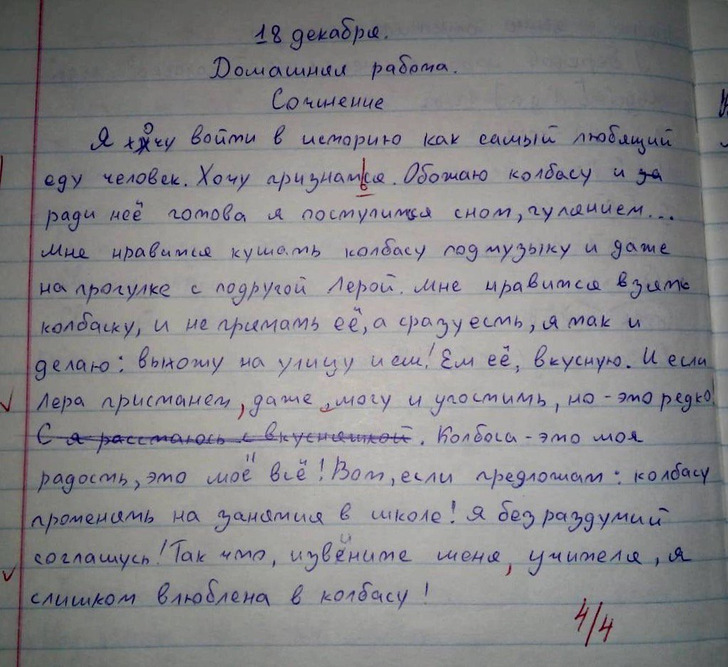 18 декабря.
Домашняя работа.
Сочинение
Я хочу войти в историю как самый любящий
еду человек. Хочу признаться. Обожаю колбасу и за
ради неё готова я поступится сном, гулянием...
Мне нравится кушать колбасу под музыку и даже
на прогулке с подругой Лерой. Мне нравится взять
колбаску, и не прятать её, а сразу есть, я так и
делаю: выхожу на улицу и ем! Ем её, вкусную. И если
Лера пристанет, даже, могу и угостить, но - это редко!
С я расстаюсь с вкусняшкой. Колбоса - это моя
радость, это моё всё! Вот, если предложат: колбасу
променять на занятия в школе! Я без раздумий
соглашусь! Так что, извените меня, учителя, я
слишком влюблена в колбасу!
4/4